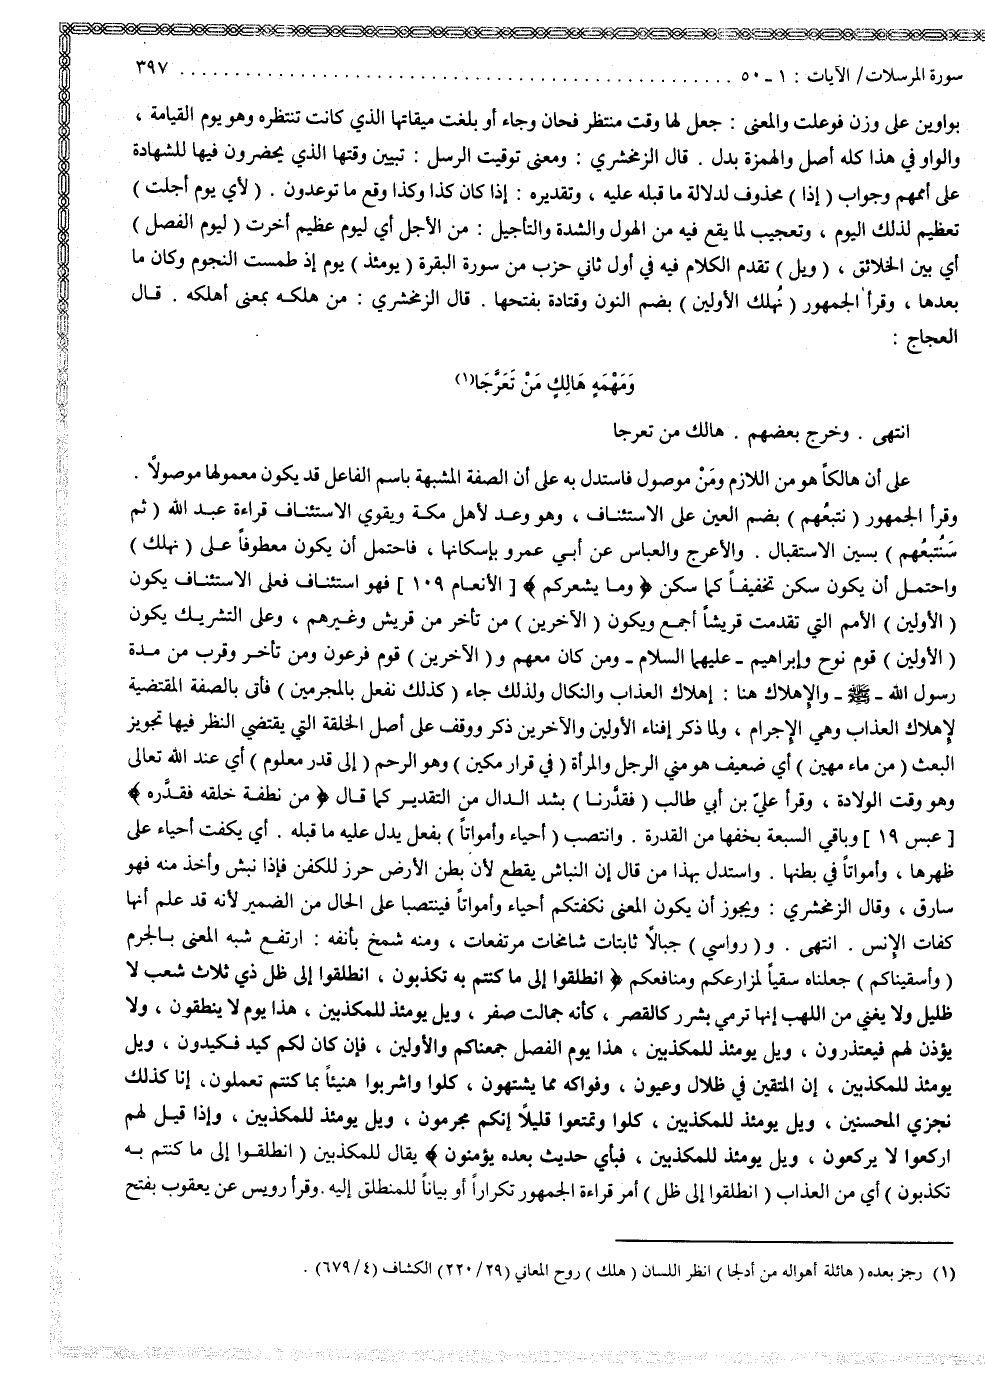 سورة المرسلات/ الآيات : ١ ـ ٥٠ ........................................................ ٣٩٧
بواوين على وزن فوعلت والمعنى : جعل لها وقت منتظر فحان وجاء أو بلغت ميقاتها الذي كانت تنتظره وهو يوم القيامة ،
والواو في هذا كله أصل والهمزة بدل . قال الزمخشري : ومعنى توقيت الرسل : تبيين وقتها الذي يحضرون فيها للشهادة
على أممهم وجواب ( إذا ) محذوف لدلالة ما قبله عليه ، وتقديره : إذا كان كذا وكذا وقع ما توعدون . ( لأي يوم أجلت )
تعظيم لذلك اليوم ، وتعجيب لما يقع فيه من الهول والشدة والتأجيل : من الأجل أي ليوم عظيم أخرت ( ليوم الفصل )
أي بين الخلائق ، ( ويل ) تقدم الكلام فيه في أول ثاني حزب من سورة البقرة ( يومئذ ) يوم إذ طمست النجوم وكان ما
بعدها ، وقرأ الجمهور ( نُهلك الأولين ) بضم النون وقتادة بفتحها . قال الزمخشري : من هلكه بمعنى أهلكه . قال
العجاج :
وَمَهْمَهٍ هَالِكٍ مَنْ تَعَرَّجَا(١)
انتهى . وخرج بعضهم . هالك من تعرجا
على أن هالكاً هو من اللازم ومَنْ موصول فاستدل به على أن الصفة المشبهة باسم الفاعل قد يكون معمولها موصولاً .
وقرأ الجمهور ( نتبعُهم ) بضم العين على الاستئناف ، وهو وعد لأهل مكة ويقوي الاستئناف قراءة عبد الله ( ثم
سَنُتبعُهم ) بسين الاستقبال . والأعرج والعباس عن أبي عمرو بإسكانها ، فاحتمل أن يكون معطوفاً على ( نهلك )
واحتمل أن يكون سكن تخفيفاً كما سكن ﴿ وما يشعركم ﴾ [ الأنعام ١٠٩ ] فهو استئناف فعلى الاستئناف يكون
( الأولين ) الأمم التي تقدمت قريشاً أجمع ويكون ( الآخرين ) من تأخر من قريش وغيرهم ، وعلى التشريك يكون
( الأولين ) قوم نوح وإبراهيم ـ عليهما السلام ـ ومن كان معهم و ( الآخرين ) قوم فرعون ومن تأخر وقرب من مدة
رسول الله ـ ﷺ ـ والإهلاك هنا : إهلاك العذاب والنكال ولذلك جاء ( كذلك نفعل بالمجرمين ) فأتى بالصفة المقتضية
لإهلاك العذاب وهي الإجرام ، ولما ذكر إفناء الأولين والآخرين ذكر ووقف على أصل الخلقة التي يقتضي النظر فيها تجويز
البعث ( من ماء مهين ) أي ضعيف هو مني الرجل والمرأة ( في قرار مكين ) وهو الرحم ( إلى قدر معلوم ) أي عند الله تعالى
وهو وقت الولادة ، وقرأ عليّ بن أبي طالب ( فقدَّرنا ) بشد الدال من التقدير كما قال ﴿ من نطفة خلقه فقدَّره ﴾
[ عبس ١٩ ] وباقي السبعة بخفها من القدرة . وانتصب ( أحياء وأمواتاً ) بفعل يدل عليه ما قبله . أي يكفت أحياء على
ظهرها ، وأمواتاً في بطنها . واستدل بهذا من قال إن النباش يقطع لأن بطن الأرض حرز للكفن فإذا نبش وأخذ منه فهو
سارق ، وقال الزمخشري : ويجوز أن يكون المعنى نكفتكم أحياء وأمواتاً فينتصبا على الحال من الضمير لأنه قد علم أنها
كفات الإنس . انتهى . و ( رواسي ) جبالاً ثابتات شامخات مرتفعات ، ومنه شمخ بأنفه : ارتفع شبه المعنى بالجرم
( وأسقيناكم ) جعلناه سقياً لمزارعكم ومنافعكم ﴿ انطلقوا إلى ما كنتم به تكذبون ، انطلقوا إلى ظل ذي ثلاث شعب لا
ظليل ولا يغني من اللهب إنها ترمي بشرر كالقصر ، كأنه جمالت صفر ، ويل يومئذ للمكذبين ، هذا يوم لا ينطقون ، ولا
يؤذن لهم فيعتذرون ، ويل يومئذ للمكذبين ، هذا يوم الفصل جمعناكم والأولين ، فإن كان لكم كيد فكيدون ، ويل
يومئذ للمكذبين ، إن المتقين في ظلال وعيون ، وفواكه مما يشتهون ، كلوا واشربوا هنيئاً بما كنتم تعملون، إنا كذلك
نجزي المحسنين ، ويل يومئذ للمكذبين ، كلوا وتمتعوا قليلاً إنكم مجرمون ، ويل يومئذ للمكذبين ، وإذا قيل لهم
اركعوا لا يركعون ، ويل يومئذ للمكذبين ، فبأي حديث بعده يؤمنون ﴾ يقال للمكذبين ( انطلقوا إلى ما كنتم به
تكذبون ) أي من العذاب ( انطلقوا إلى ظل ) أمر قراءة الجمهور تكراراً أو بياناً للمنطلق إليه . وقرأ رويس عن يعقوب بفتح
(١) رجز بعده ( هائلة أهواله من أدلجا ) انظر اللسان ( هلك ) روح المعاني (٢٩/ ٢٢٠) الكشاف (٤/ ٦٧٩) .